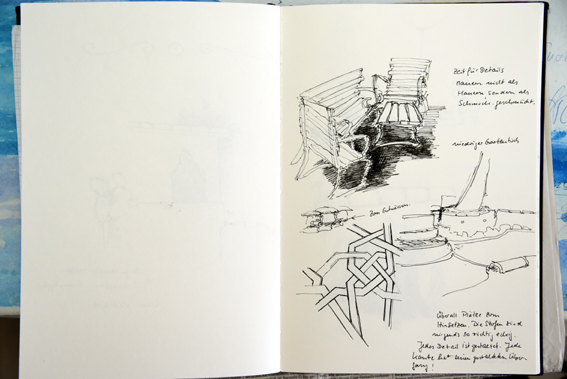 Zeit für Details
Mauern nicht als
Mauern sondern als
Schmuck. geschmückt.
niedriger Gartentisch
Zum
Überall Plätze zum
Hinsetzen. Die Stufen sind
nirgends so richtig eckig.
Jedes Detail ist gestaltet. Jede
Kante hat seinen perfekten Über
gang!